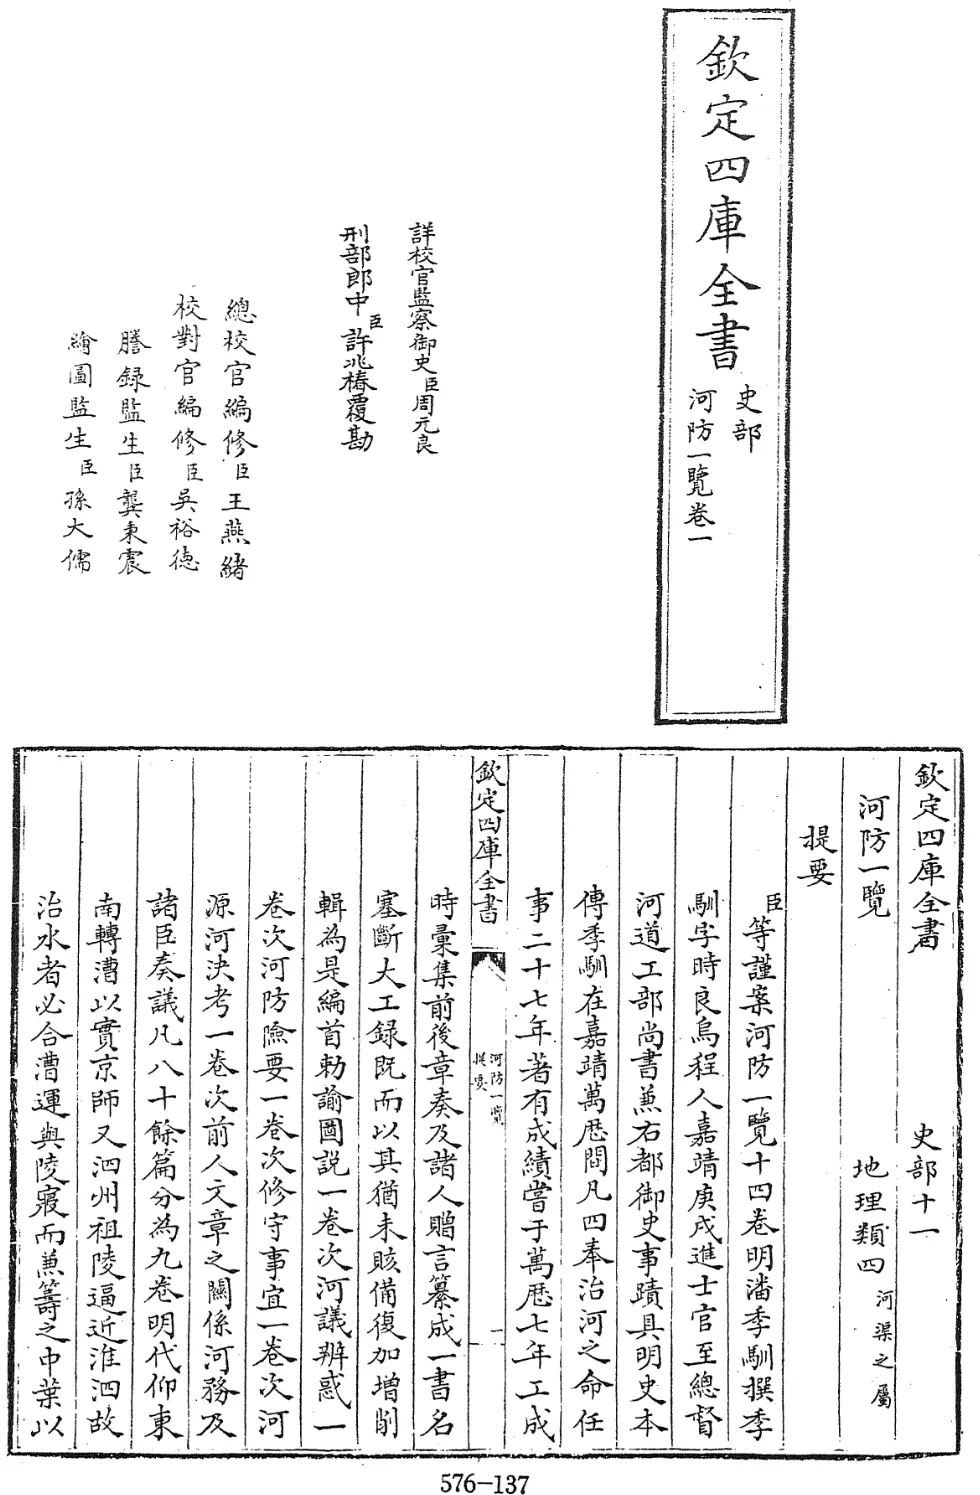 欽定四庫全書
史部
河防一覽卷一
詳校官監察御史臣周元良
刑部郎中臣許兆椿覆勘
總校官編修臣王燕緒
校對官編修臣吳裕德
謄錄監生臣龔秉震
繪圖監生臣孫大儒
欽定四庫全書 史部十一
河防一覽 地理類四河渠之屬
提要
臣等謹案河防一覽十四卷明潘季馴撰季
馴字時良烏程人嘉靖庚戌進士官至總督
河道工部尚書兼右都御史事蹟具明史本
傳季馴在嘉靖萬歷間凡四奉治河之命任
事二十七年著有成績嘗于萬歷七年工成
欽定四庫全書
河防一覽
提要
一
時彙集前後章奏及諸人贈言纂成一書名
塞斷大工録既而以其猶未賅備復加增削
輯為是編首勅諭圖說一卷次河議辨惑一
卷次河防險要一卷次修守事宜一卷次河
源河決考一卷次前人文章之關係河務及
諸臣奏議凡八十餘篇分為九卷明代仰東
南轉漕以實京師又泗州祖陵逼近淮泗故
治水者必合漕運與陵寢而兼籌之中葉以
576-137